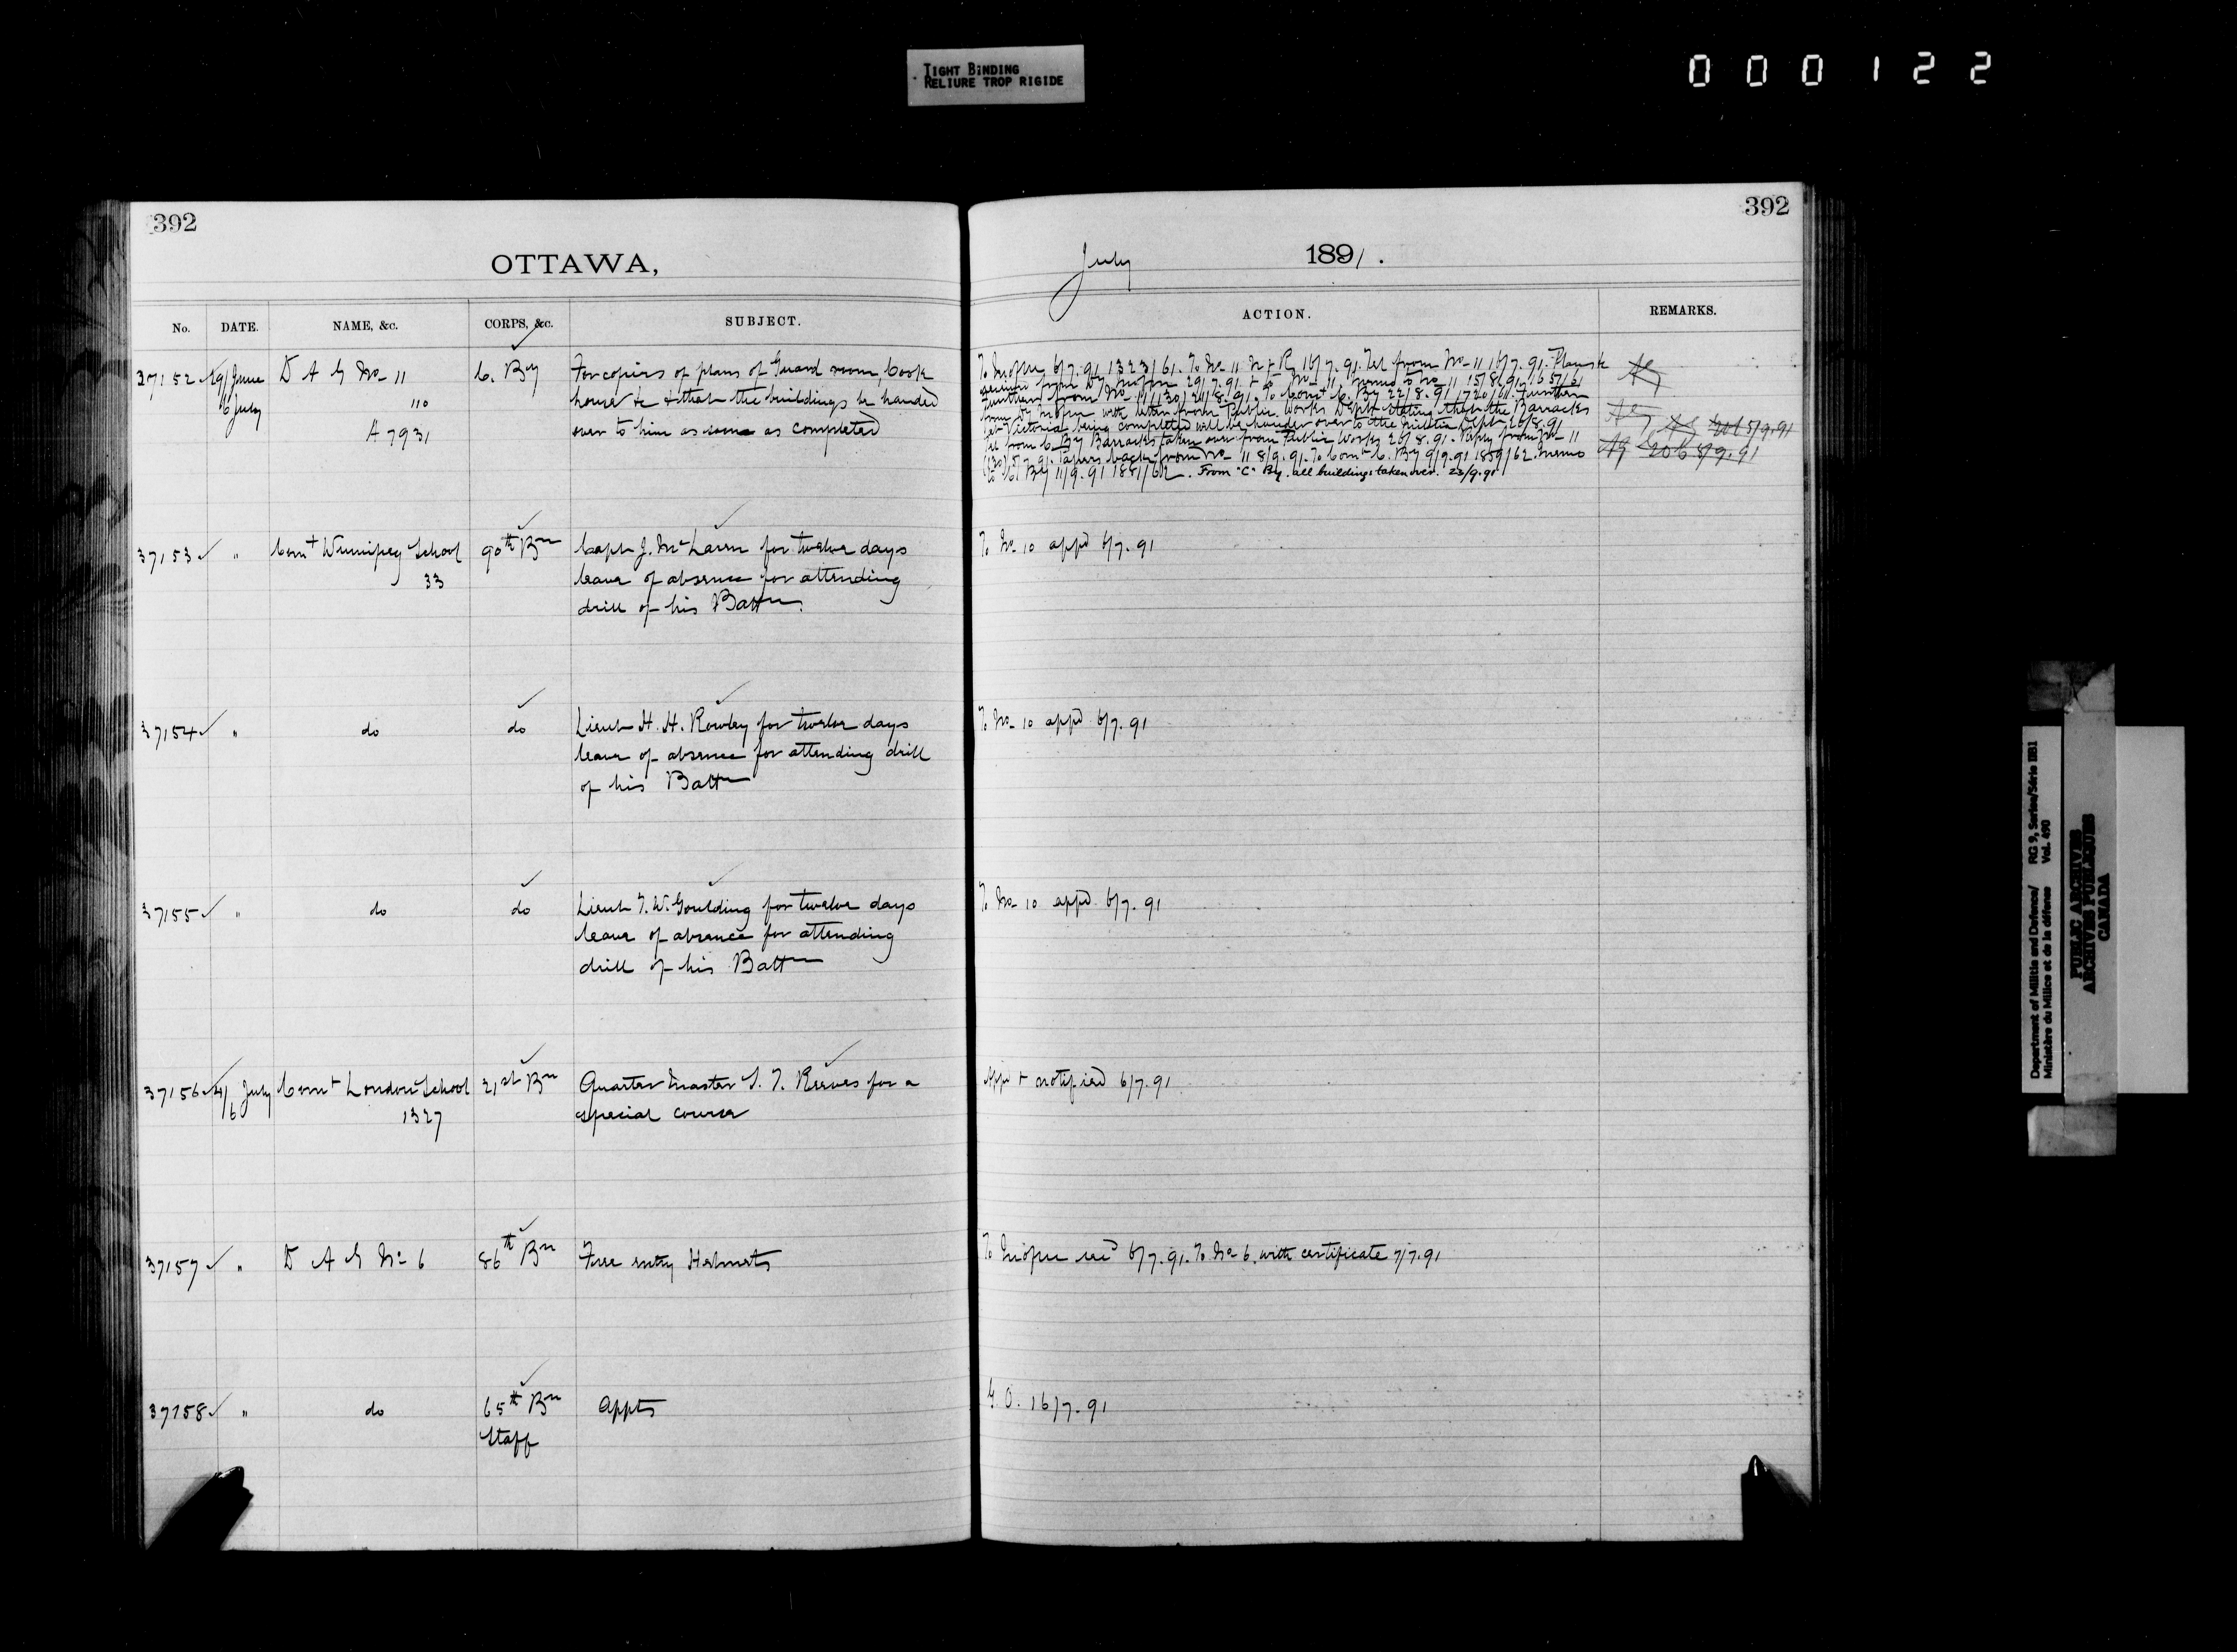 TIGHT BINDING
RELIURE TROP RIGIDE
000122
392
OTTAWA,
No. DATE. NAME, &c. CORPS, &c. SUBJECT.
37152 29/June D A G No 11 C. By For copies of plans of Guard room, Cook
6 July 110 house &c & that the buildings be handed
A 7931 over to him as soon as completed
37153 " Comt Winnipeg School 90th Bn Capt J. McLaren for twelve days
33 leave of absence for attending
drill of his Battn
37154 " do do Lieut H. H. Rowley for twelve days
leave of absence for attending drill
of his Battn
37155 " do do Lieut F. W. Goulding for twelve days
leave of absence for attending
drill of his Battn
37156 4/ July Comt London School 21st Bn Quarter Master S. T. Reeves for a
6 1327 special course
37157 " D A G No 6 86th Bn Free entry Helmets
37158 " do 65th Bn Appts
Staff
392
July 1891.
ACTION. REMARKS.
6/7.91 1323/61. To No 11 6/7.91. Tel from No 11 16/7.91. Plans &c
29/7.91 No 11. Memo to No 11 15/8.91. 1657/61
from No 11/130/ 21/8.91. To Comt C. By 22/8.91 1720/61. Further
with letter from Public Works Dept stating that the Barracks
at Victoria being completed will be handed over to the Militia Dept 26/8.91
Tel from C By Barracks taken over from Public Works 26/8.91. Reply from No 11 5/9.91
Papers back from No 11 8/9.91. To Comt C. By 9/9.91 1859/62. Memo 206 8/9.91
to C. By 11/9.91 1881/62. From "C" By. all buildings taken over. 23/9.91
To No 10 appd 6/7.91
To No 10 appd 6/7.91
To No 10 appd 6/7.91
Appd & notified 6/7.91
6/7.91. To No 6. with certificate 7/7.91
G.O. 16/7.91
Department of Militia and Defence/ RG 9, Series/Série IIB1
Ministère du Milice et de la défense Vol. 490
PUBLIC ARCHIVES
ARCHIVES PUBLIQUES
CANADA